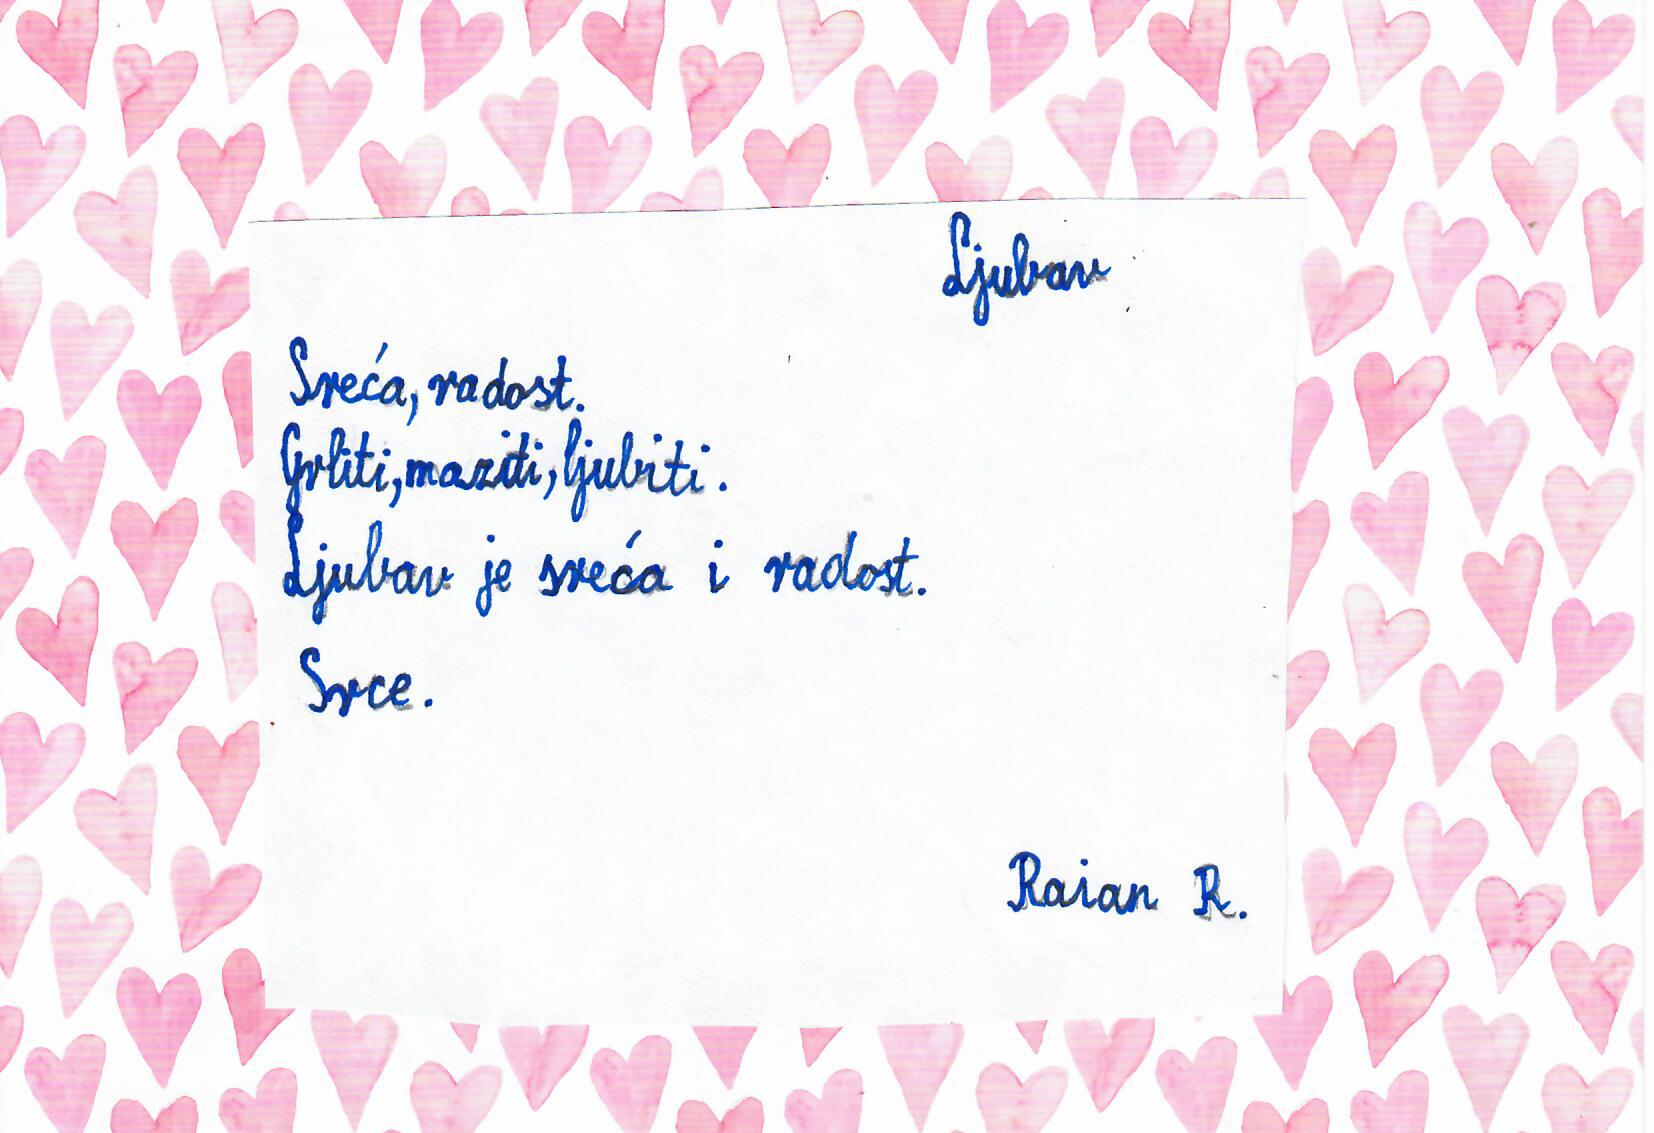 Ljubav
Sreća, radost.
Grliti, maziti, ljubiti.
Ljubav je sreća i radost.
Srce.
Raian R.